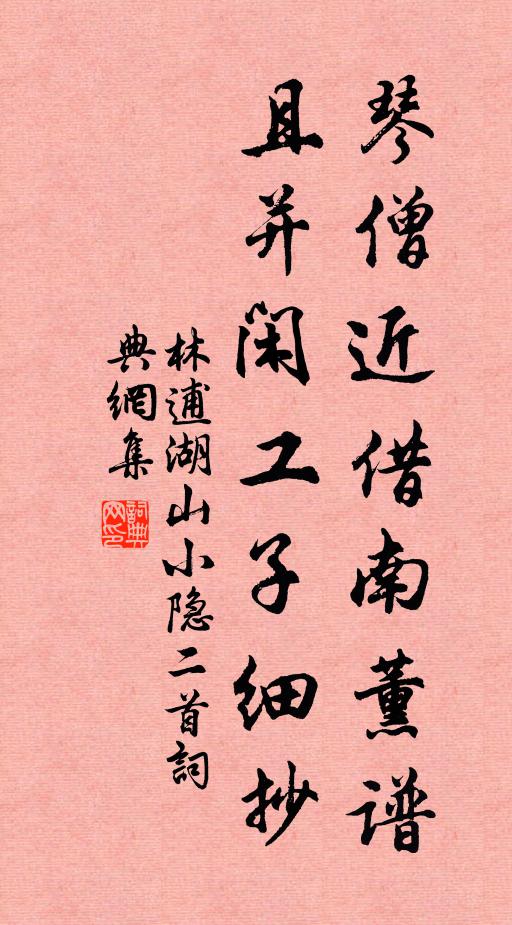 琴僧近借南薰谱
且并闲工子细抄
林逋湖山小隐二首詞
典網集
詞典
网印